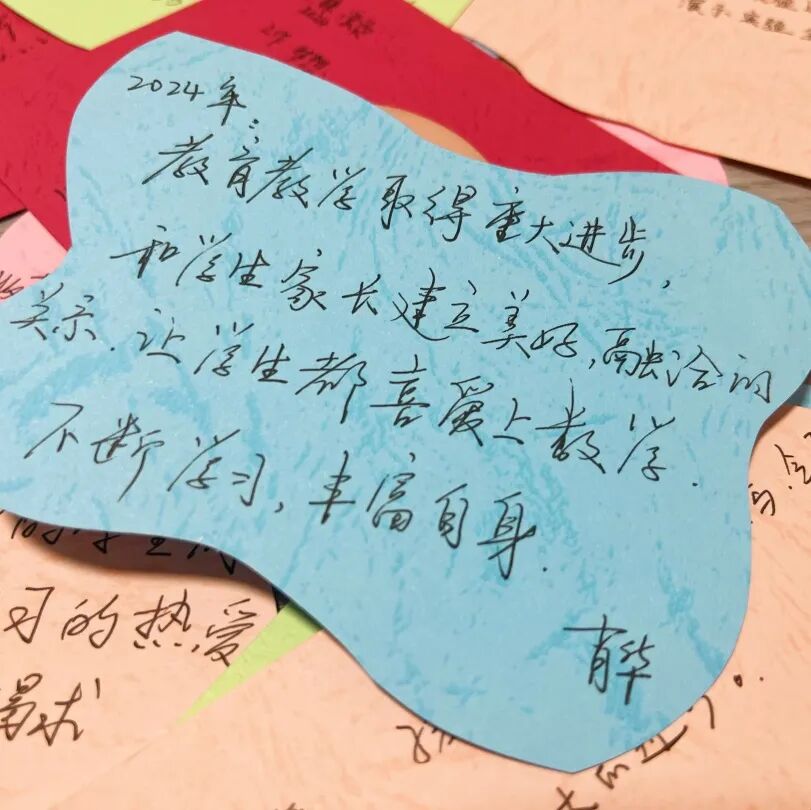 2024年:
教育教学取得重大进步,
和学生家长建立美好,融洽的
关系.让学生都喜爱上数学.
不断学习,丰富自身.
有华
习的热爱
渴求